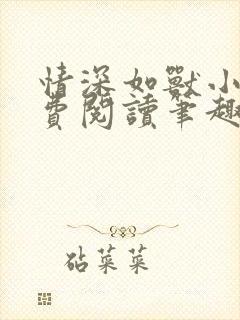 情深如獸小
費閱讀筆趣
砧菜菜